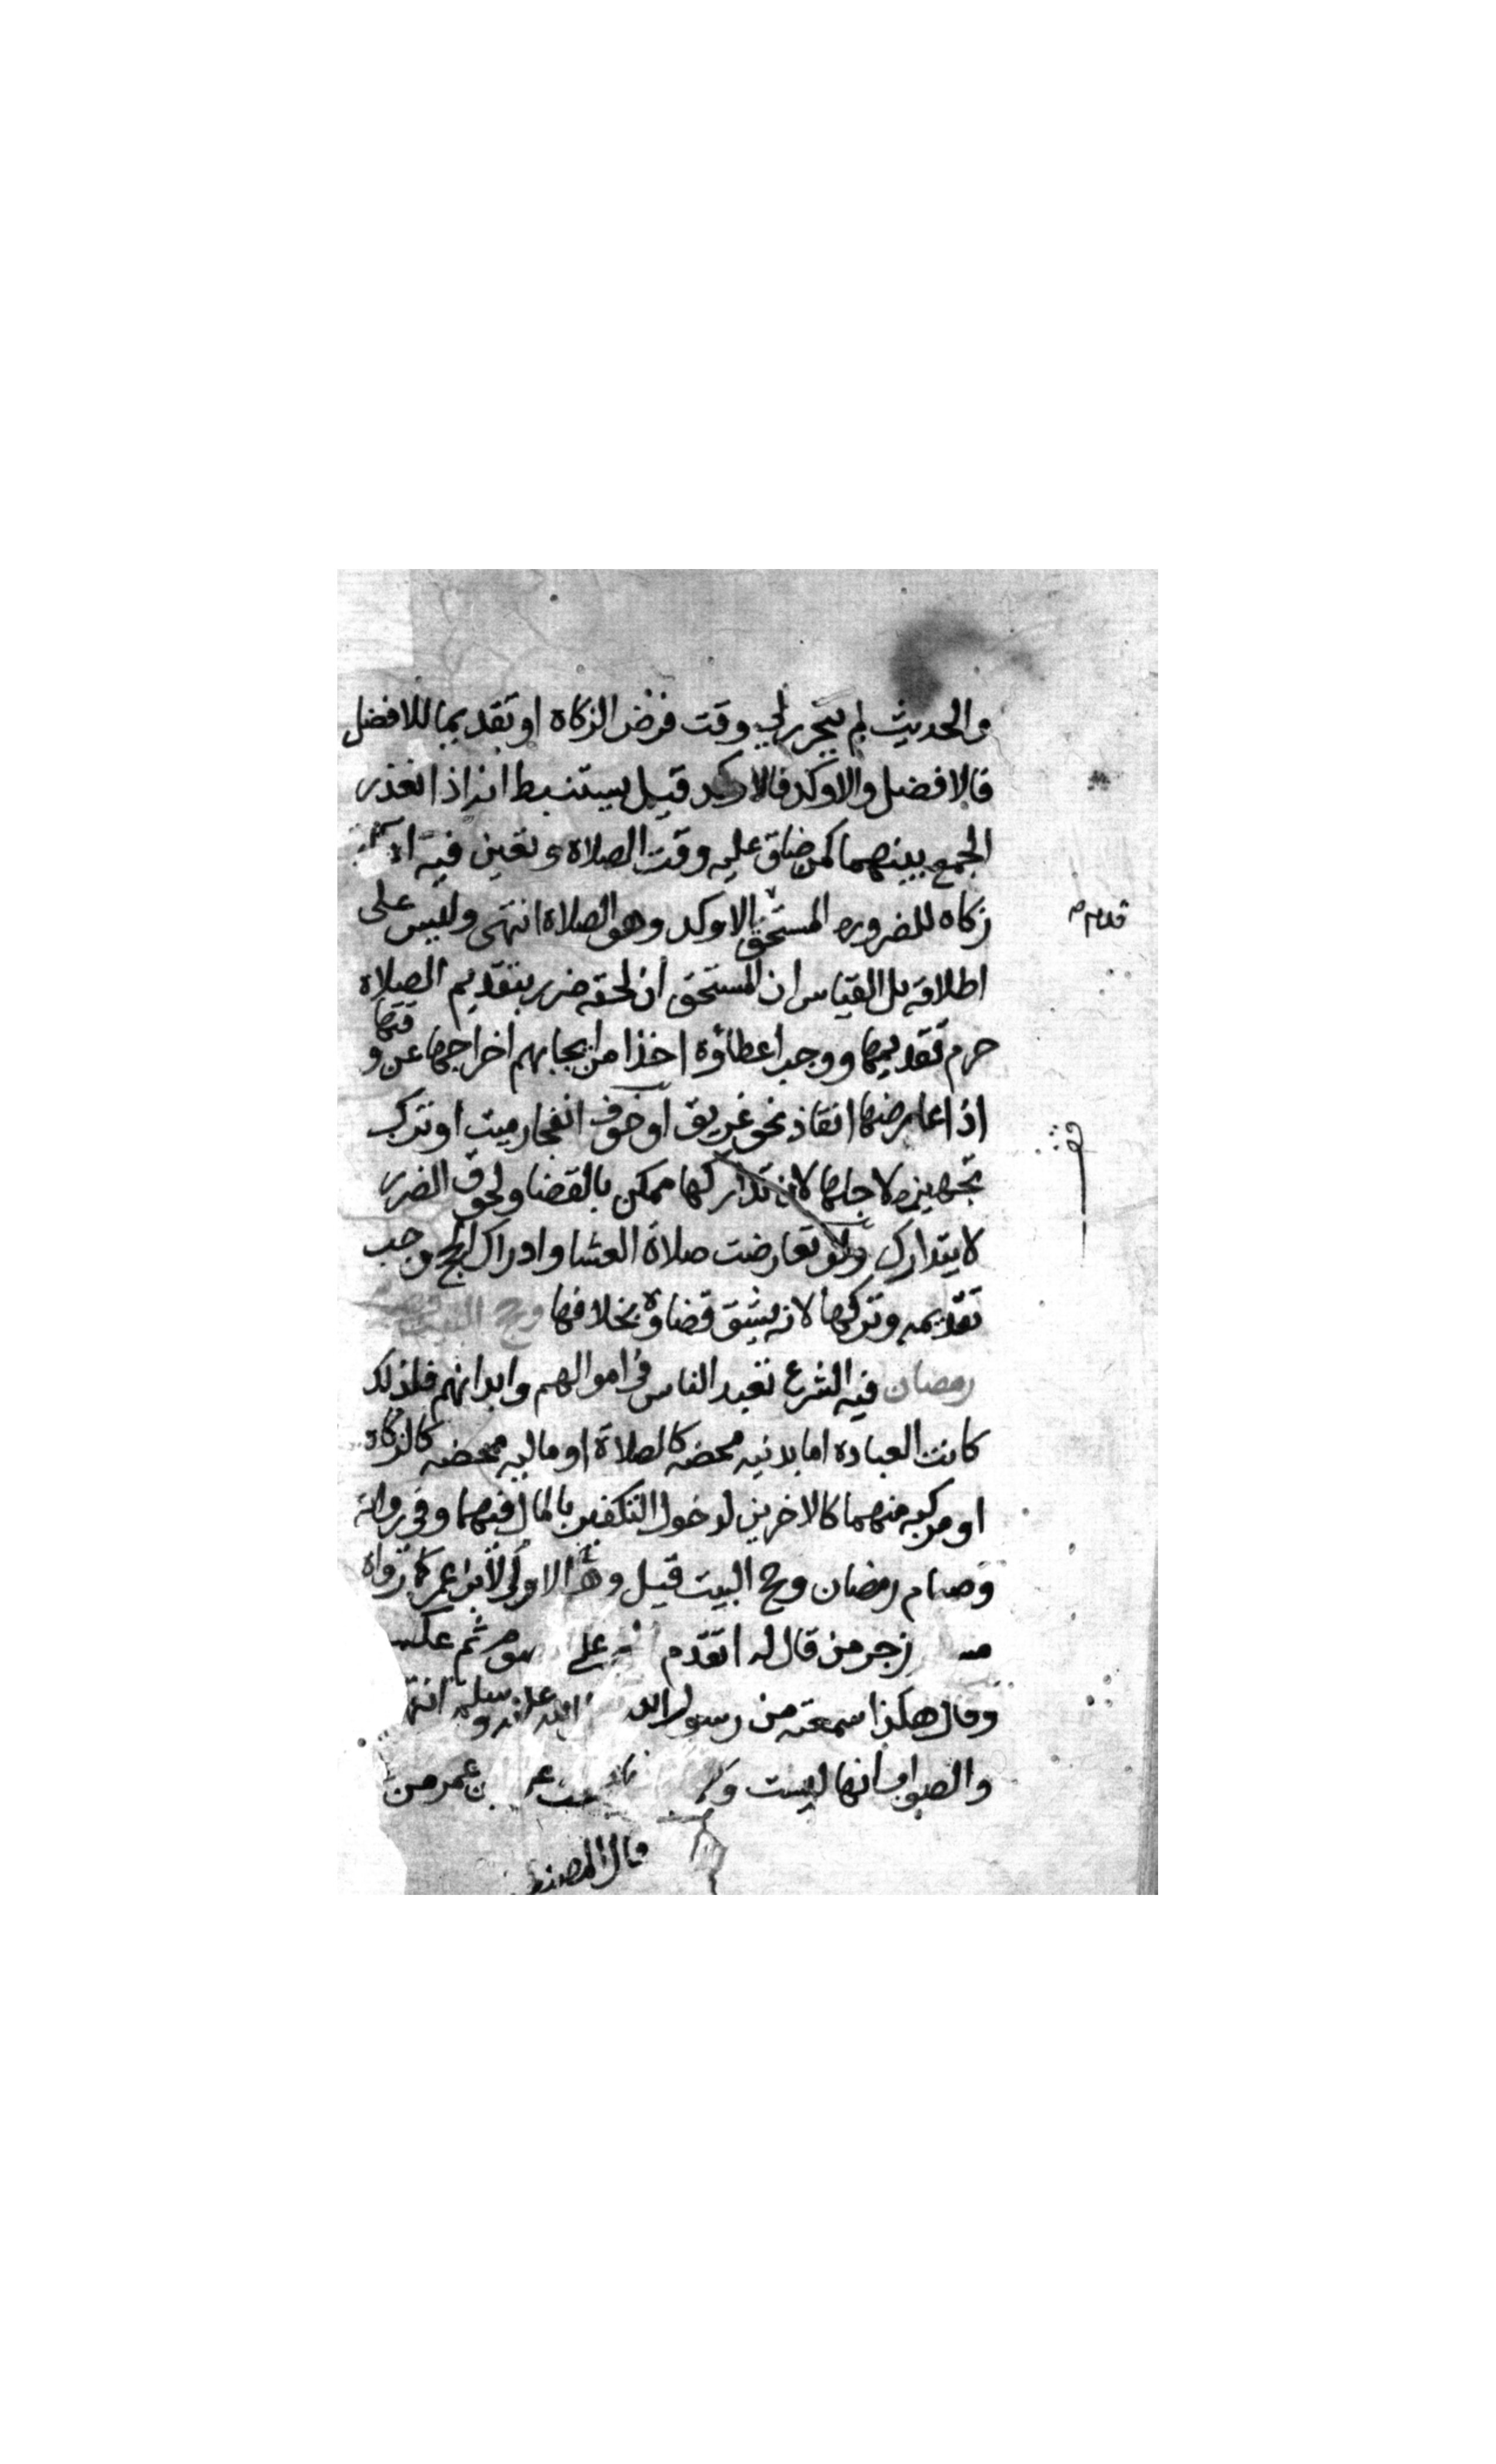 والحديث لم يتحرر لي وقت فرض الزكاة او تقديما للافضل
فالافضل والاوكد فالاوكد قيل يستنبط انه اذا تعذر
الجمع بينهما كمن ضاق عليه وقت الصلاة وتعين فيه
زكاه للضروره المستحق الاوكد وهو الصلاة انتهى وليس على
قدم
اطلاقه بل القياس ان المستحق ان لحقه ضرر بتقديم الصلاة
حرم تقديمها ووجب اعطاؤه اخذا من ايجابهم اخراجها عن وقتها
اذا عارضها انقاذ نحو غريق او خوف انفجار ميت او ترك
تجهيزه لاجلها لان تداركها ممكن بالقضا ولحوق الضرر
لا يتدارك ولو تعارضت صلاة العشا وادراك الحج وجب
تقديمه وتركها لانه يشق قضاؤه بخلافها وحج البيت
رمضان فيه الشرع تعبد الناس في اموالهم وابدانهم فلذلك
كانت العباده اما بدنيه محضه كالصلاة او ماليه محضه كالزكاة
او مركبه منهما كالاخرين لدخول التكفير بالمال فيهما وفي رواية
وصيام رمضان وحج البيت قيل وهو الاولى لان ابن عمر كما رواه
زجر من قال له اتقدم على ثم عكس
وقال هكذا سمعته من رسول الله الله عليه وسلم انتهى
والصواب انها ليست عمر من
قال المصنف